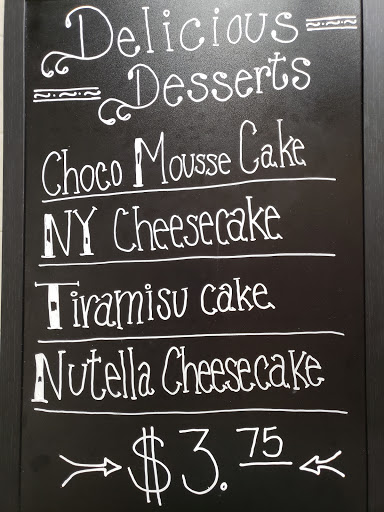 Delicious
Desserts
Choco Mousse Cake
NY Cheesecake
Tiramisu cake
Nutella Cheesecake
$3.75